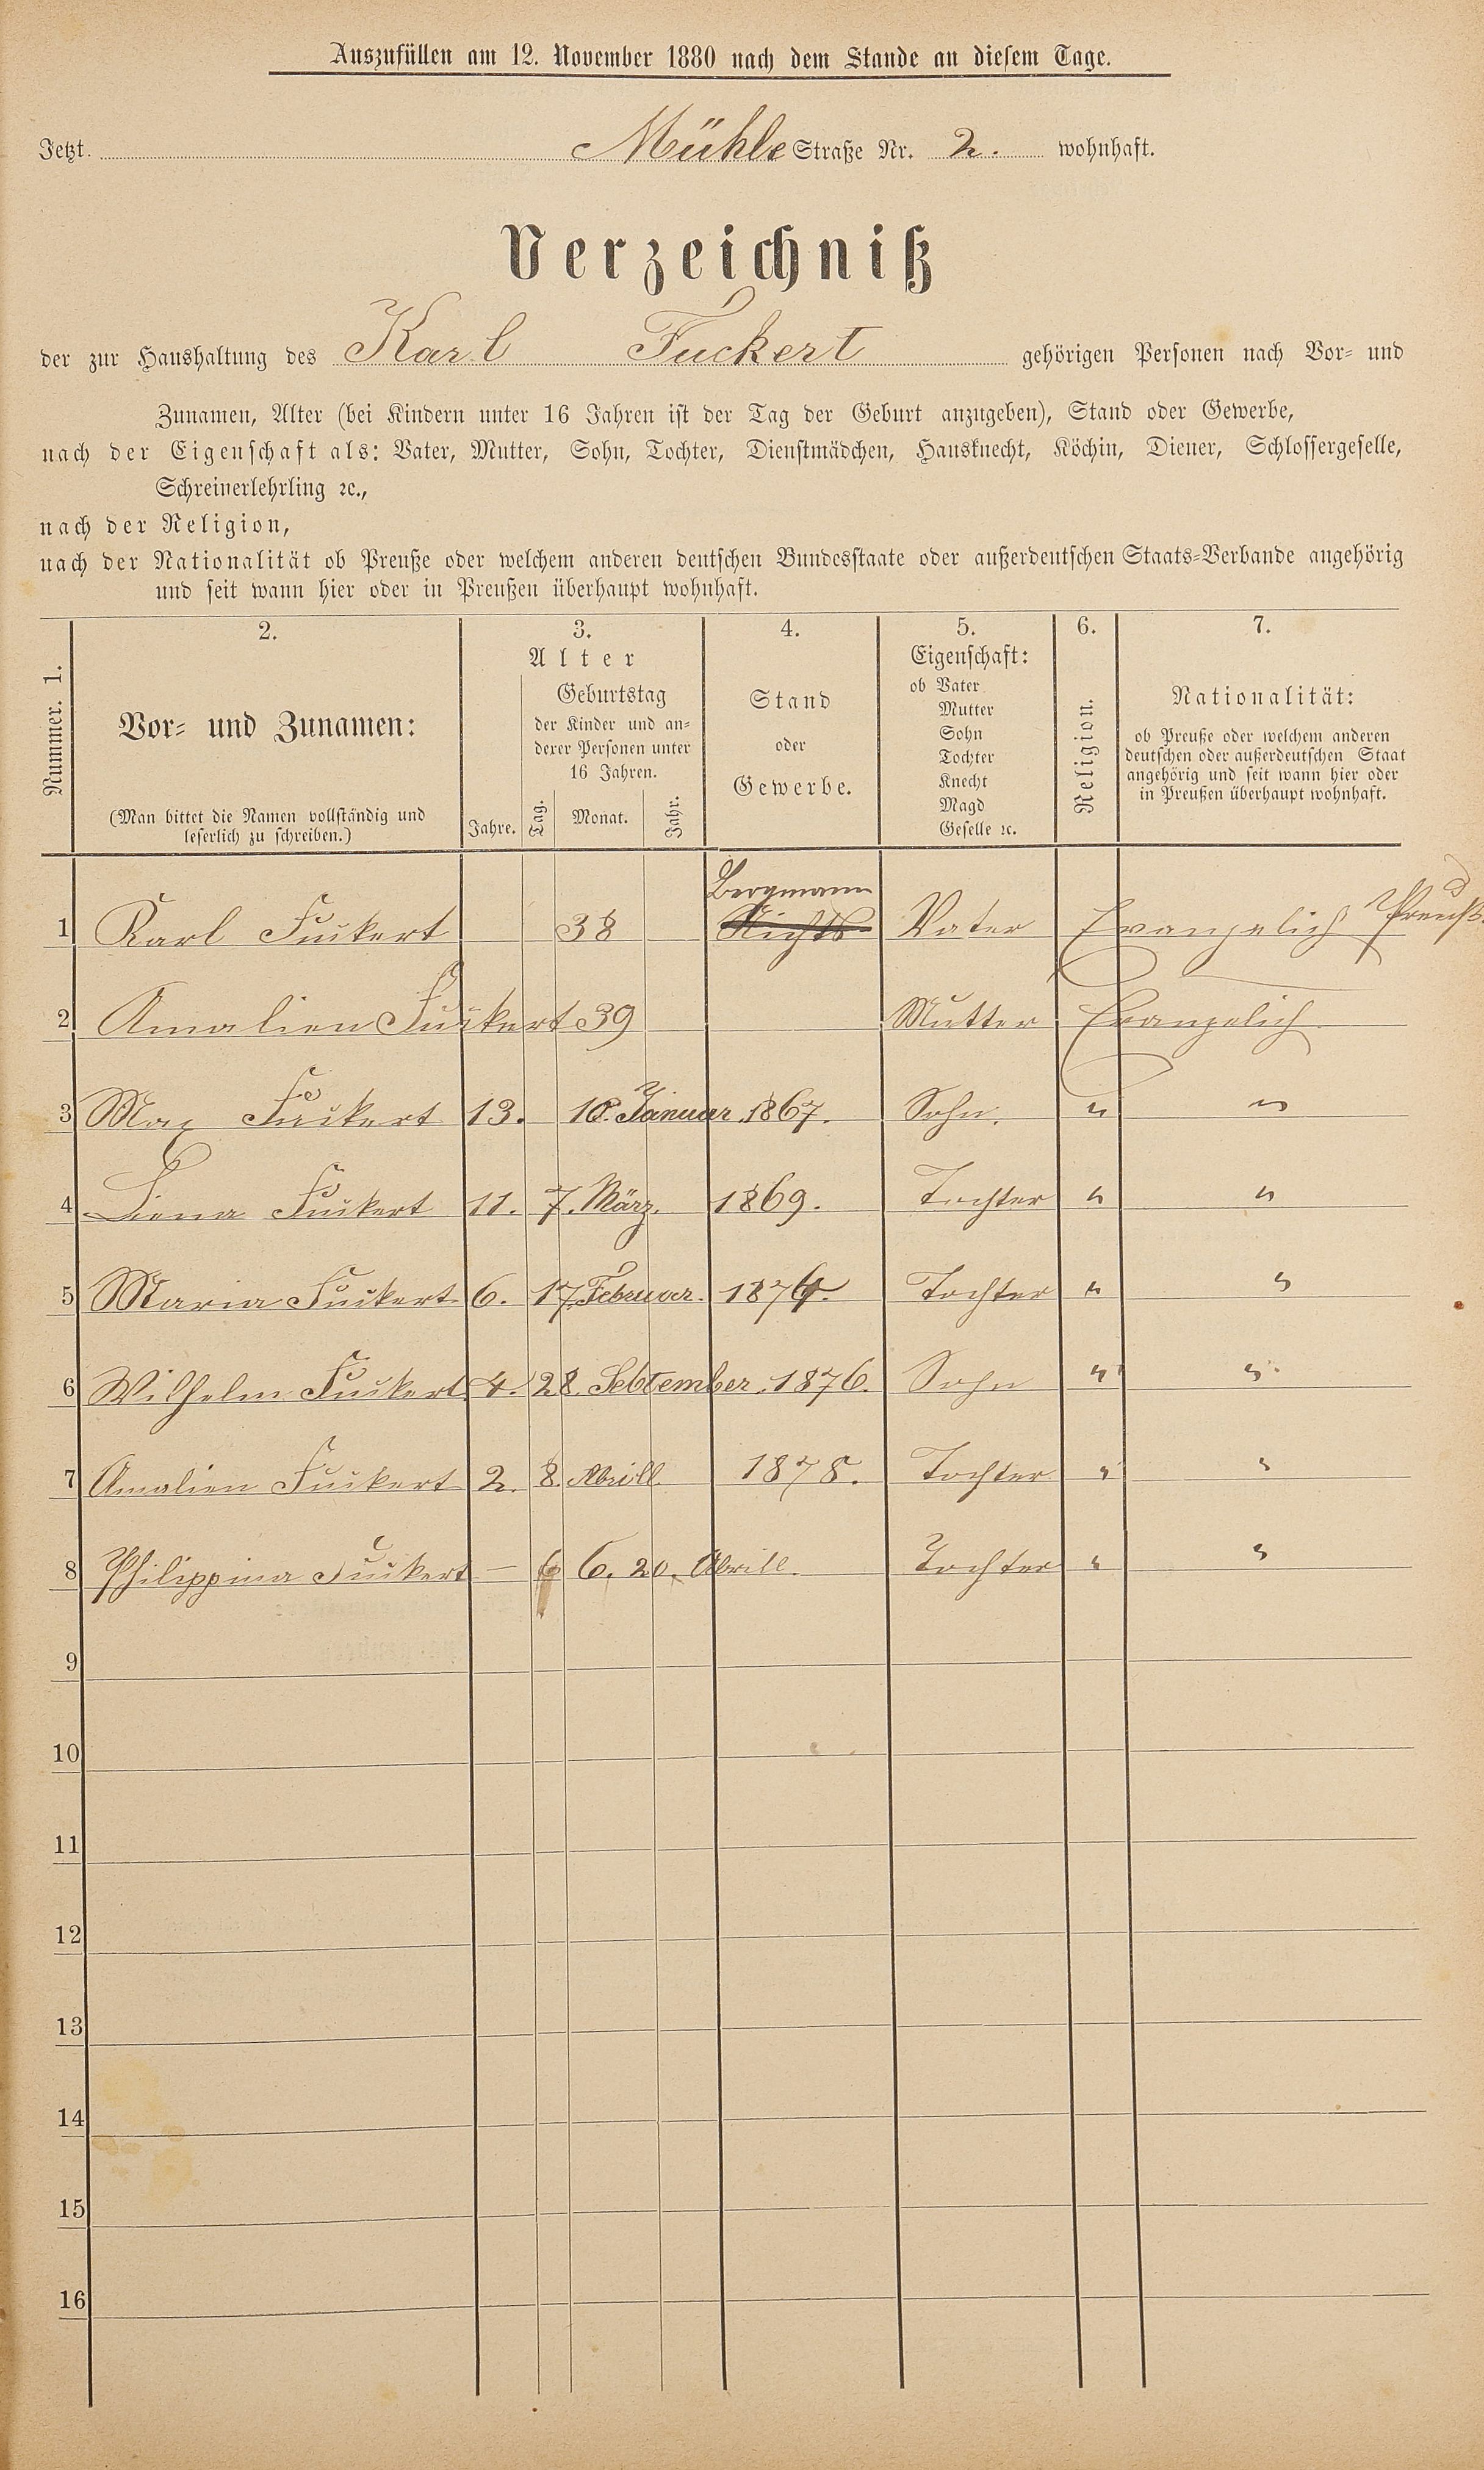 Auszufüllen am 12. November 1880 nach dem Stande an diesem Tage.
Jetzt Mühle Straße Nr. 2. wohnhaft.
Verzeichniß
der zur Haushaltung des Karl Fuckert gehörigen Personen nach Vor- und
Zunamen, Alter (bei Kindern unter 16 Jahren ist der Tag der Geburt anzugeben), Stand oder Gewerbe,
nach der Eigenschaft als: Vater, Mutter, Sohn, Tochter, Dienstmädchen, Hausknecht, Köchin, Diener, Schlossergeselle,
Schreinerlehrling ꝛc.,
nach der Religion,
nach der Nationalität ob Preuße oder welchem anderen deutschen Bundesstaate oder außerdeutschen Staats-Verbande angehörig
und seit wann hier oder in Preußen überhaupt wohnhaft.
Nummer. 1.
2.
Vor- und Zunamen:
(Man bittet die Namen vollständig und
leserlich zu schreiben.)
3.
Alter
Jahre.
Geburtstag
der Kinder und an-
derer Personen unter
16 Jahren.
Tag. Monat. Jahr.
4.
Stand
oder
Gewerbe.
5.
Eigenschaft:
ob Vater
Mutter
Sohn
Tochter
Knecht
Magd
Geselle ꝛc.
6.
Religion.
7.
Nationalität:
ob Preuße oder welchem anderen
deutschen oder außerdeutschen Staat
angehörig und seit wann hier oder
in Preußen überhaupt wohnhaft.
Bergmann
1 Karl Fuckert 38 Nichts Vater Evangelich Preuß
2 Amalien Fuckert 39 Mutter Evangelich
3 Max Fuckert 13. 18. Januar 1867. Sohn. " "
4 Liena Fuckert 11. 7. März. 1869. Tochter " "
5 Maria Fuckert 6. 17. Februar. 1874. Tochter " "
6 Wilhelm Fuckert 4. 28. Sebtember. 1876. Sohn " "
7 Amalien Fuckert 2. 8. Abrill 1878. Tochter " "
8 Philippina Fuckert — 6. 20. Abrill. Tochter " "
9
10
11
12
13
14
15
16